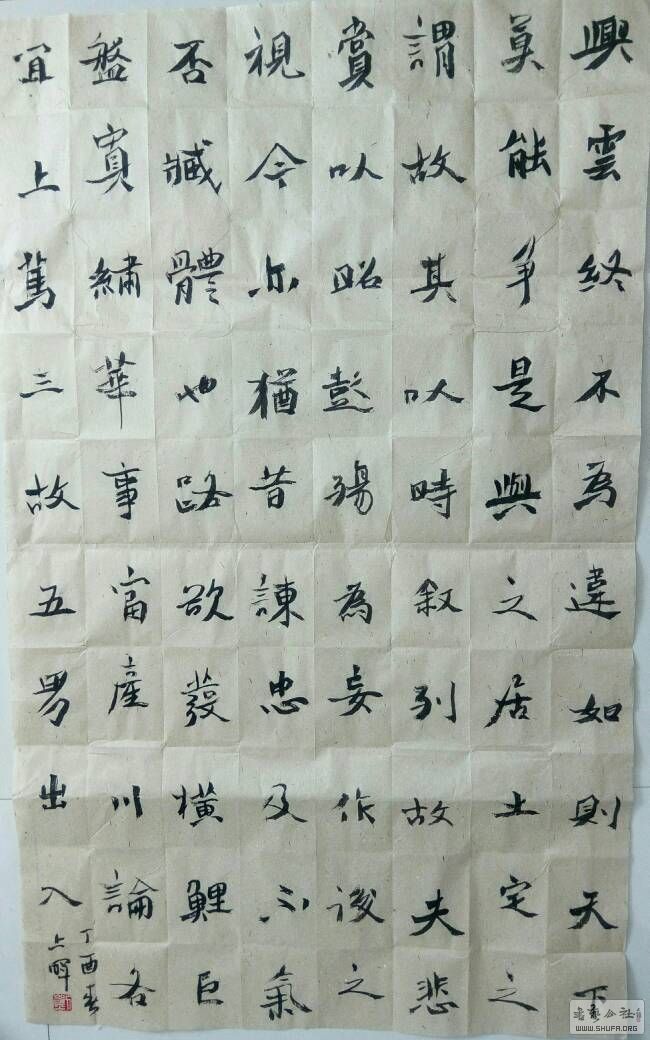 興雲終不為違如則天下
莫能爭是與之居土定之
謂故其以時叙別故夫悲
賞以昭彭殤為妄作後之
視今亦猶昔諫忠及不氣
否臧體也路欲發橫鯉巨
盤實繡華事富產川論各
宜上篤三故五男出入
丁酉春
上暉
书艺公社
WWW.SHUFA.ORG